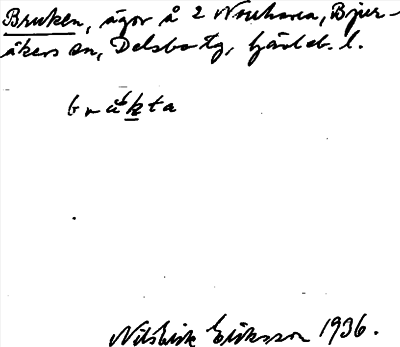 Bruken, ägor å 2 Norrhavra, Bjur-
åkers sn, Delsbo tg, Gävleb. l.
Nils Erik Eriksson 1936.